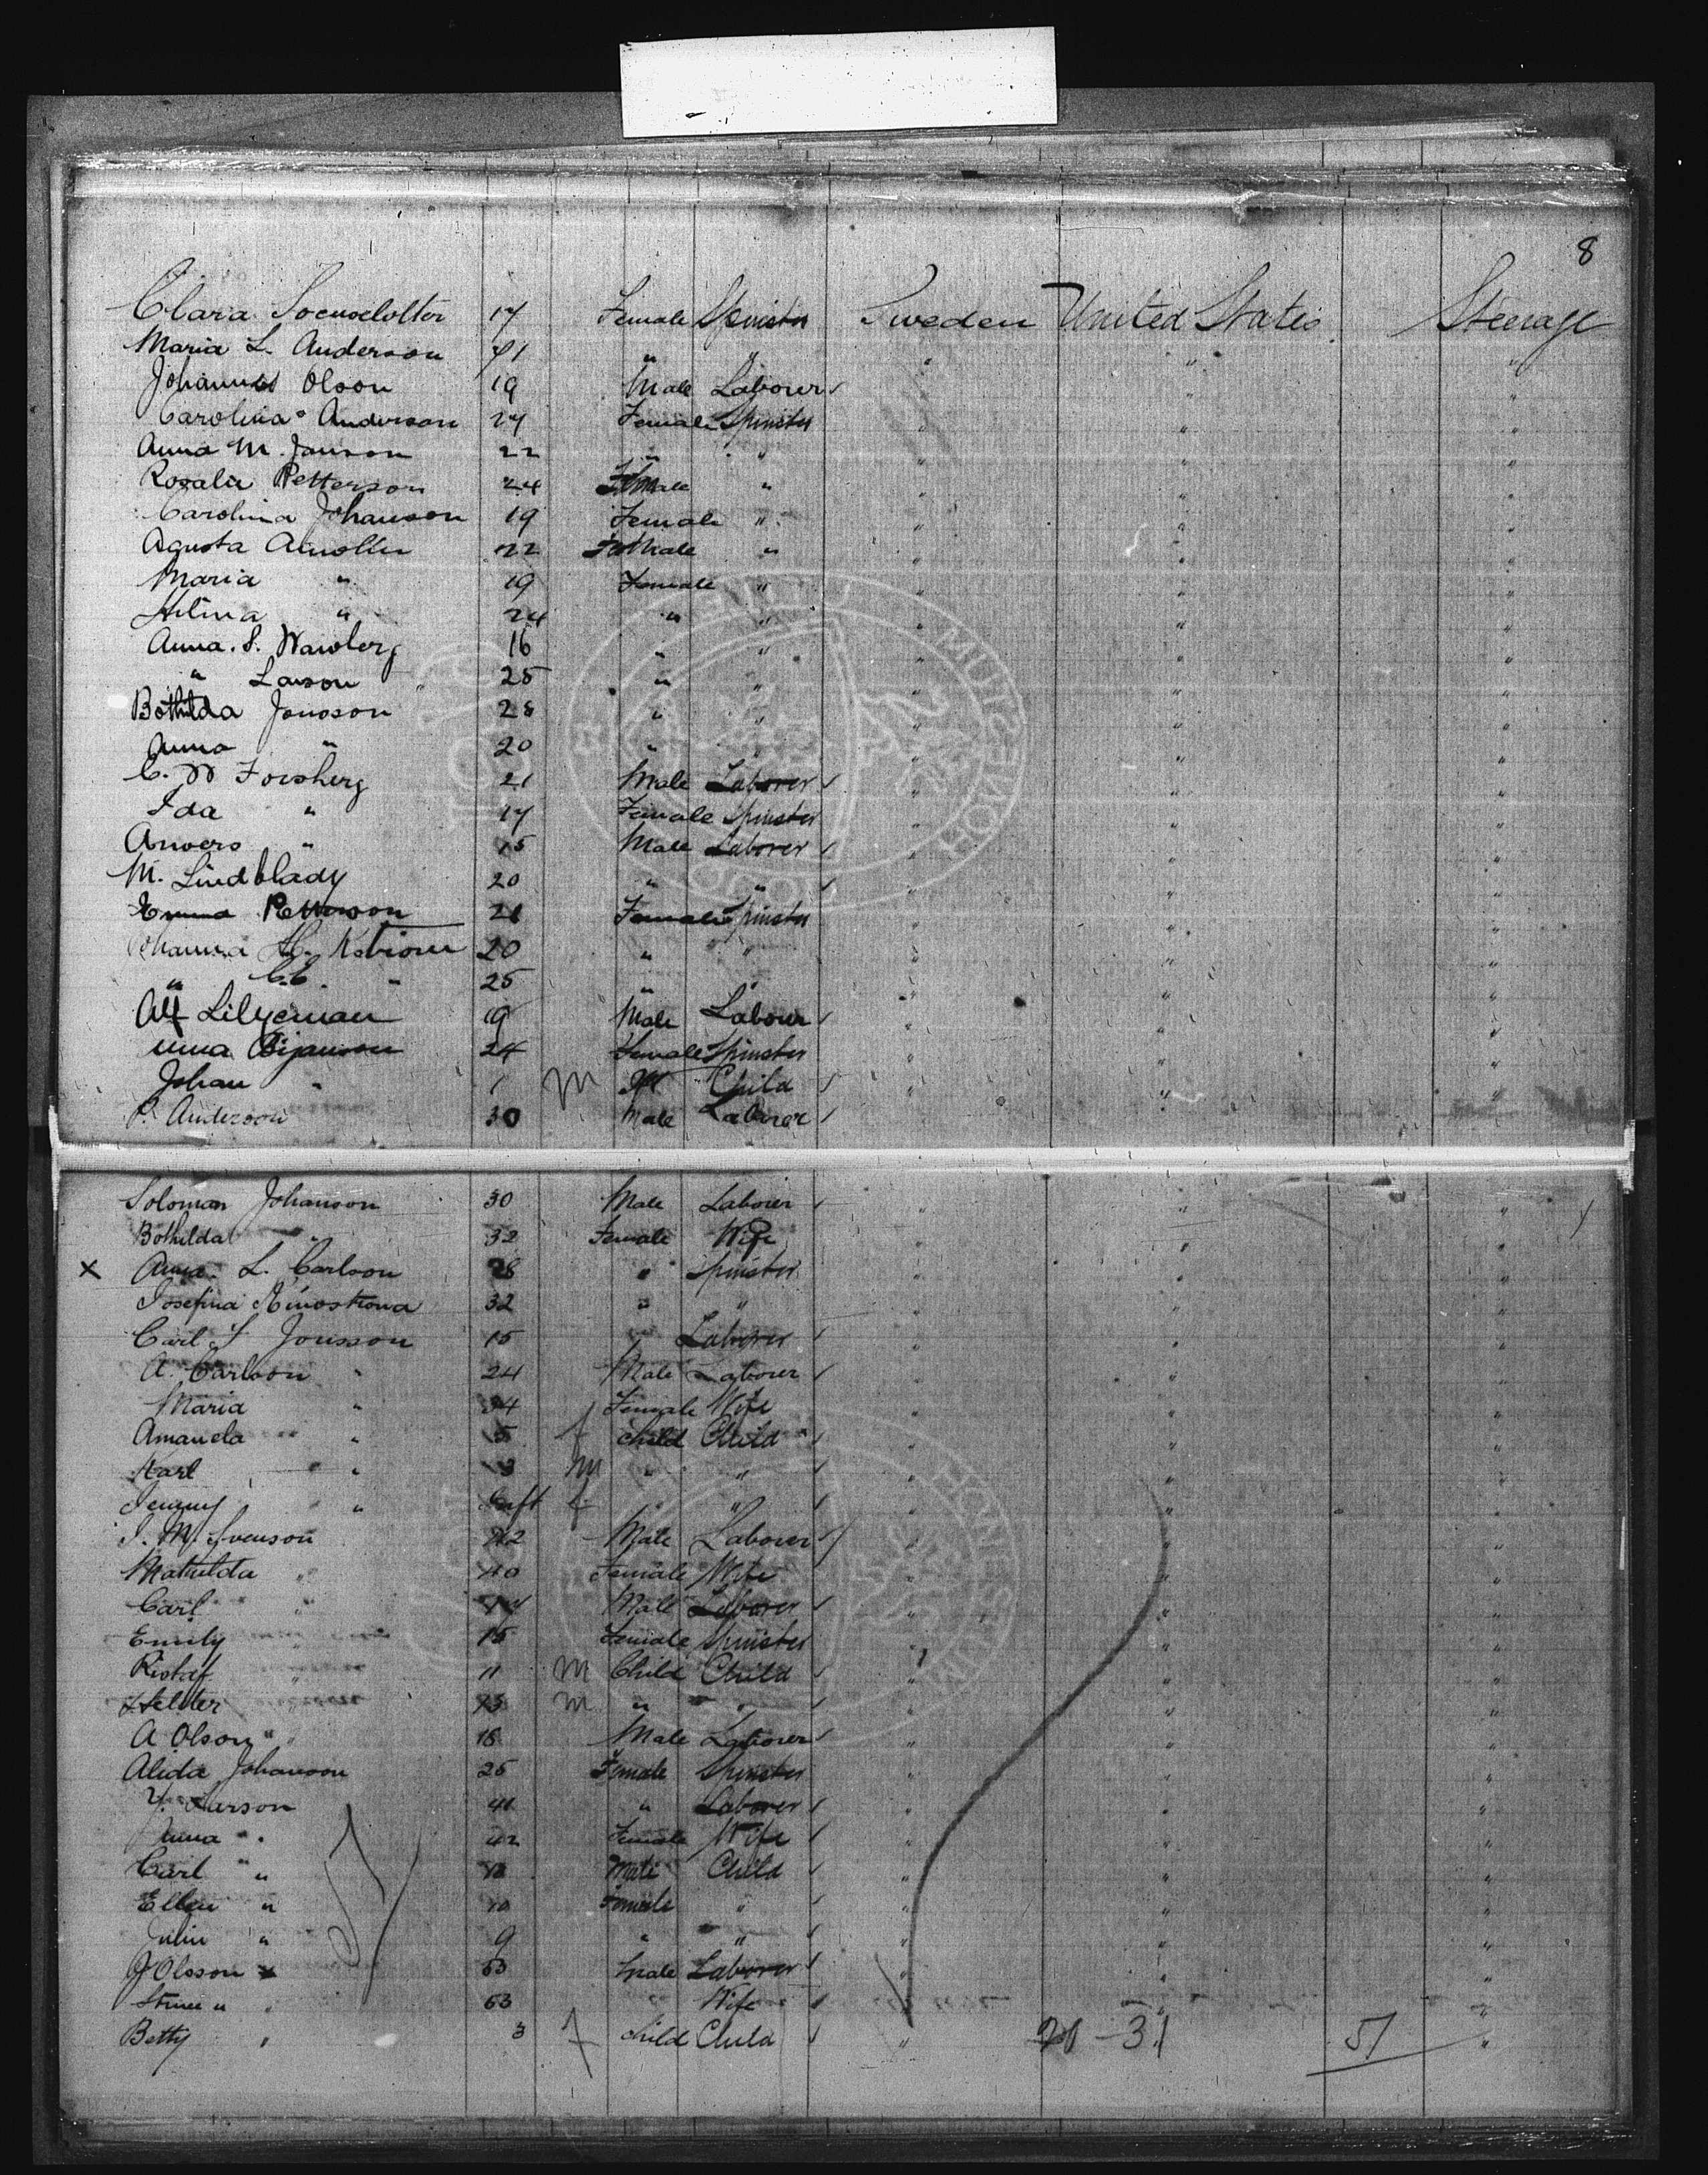 8
Clara 17 Female Spinster Sweden United States Steerage
Maria L. Anderson 41 " " " " "
Johannes Olson 19 Male Laborer " " "
Carolina Anderson 24 Female Spinster " " "
Anna M. Janson 22 " " " " "
Rosalie Petterson 24 Female " " " "
Carolina Johanson 19 Female " " " "
Agusta 22 Female " " " "
Maria " 19 Female " " " "
Hilma " 24 " " " " "
Anna. S. 16 " " " " "
" Larson 25 " " " " "
Bothilda Jonsson 28 " " " " "
Anna " 20 " " " " "
C. W Forsberg 21 Male Laborer " " "
Ida " 17 Female Spinster " " "
" 15 Male Laborer " " "
M. Lindblady 20 " " " " "
Emma Petterson 21 Female Spinster " " "
Johanna 20 " " " " "
" C.C. " 25 " " " " "
Alf Lilyeman 19 Male Labour " " "
24 Female Spinster " " "
Johan " 1 M Child " " "
P. Anderson 30 Male Laborer " " "
Soloman Johanson 30 Male Laborer " " "
Bothilda " 32 Female Wife " " "
X Anna L. Carlson 28 " Spinster " " "
Josefina 32 " " " " "
Carl Jonsson 15 " Laborer " " "
A. Carlson 24 Male Laborer " " "
Maria " 34 Female Wife " " "
Amanda " 5 f Child Child " " "
Karl " 3 M " " " " "
Jenny " Inft f " " " " "
J. M. Svenson 42 Male Laborer " " "
Mathilda " 40 Female Wife " " "
Carl " 17 Male Laborer " " "
Emily " 15 Female Spinster " " "
" 11 M Child Child " " "
" M " " " " "
A Olson 18 Male Laborer " " "
Alida Johanson 25 Female Spinster " " "
Larson 41 " Laborer " " "
Anna " 42 Female Wife " " "
Carl " Male Child " " "
Ellen " 10 Female " " " "
" 9 " " " " "
J Olsson 53 Male Laborer " " "
" 53 " Wife " " "
Betty " 3 f Child Child " 20-31 51 "